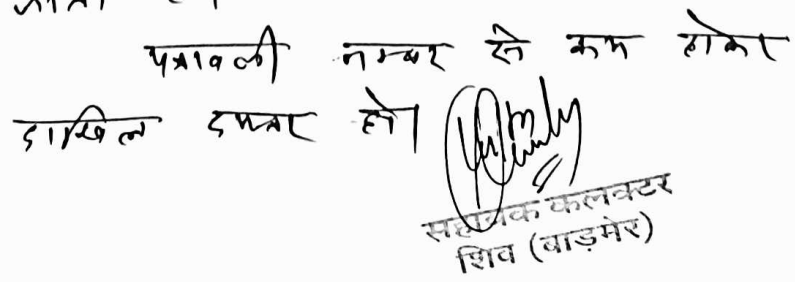 पत्रावली नम्बर से कम होकर
दाखिल दफ्तर हो।
सहायक कलक्टर
शिव (बाड़मेर)